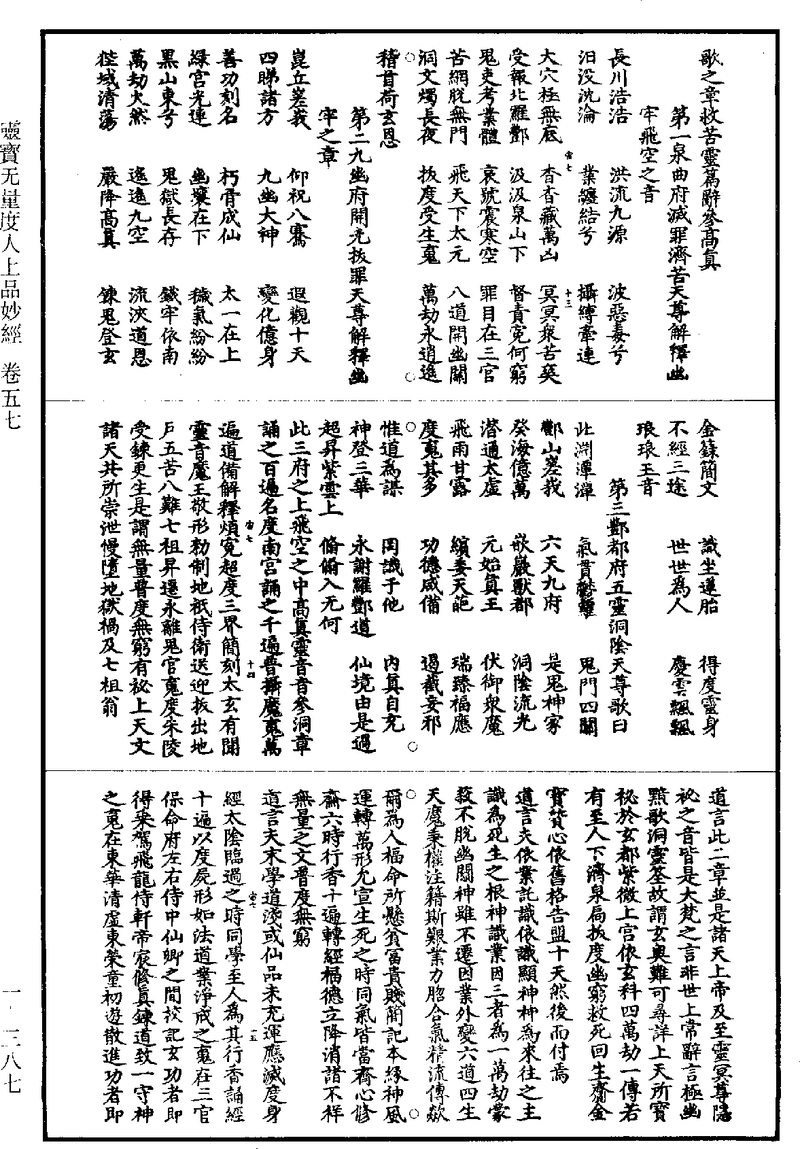 歌之章救苦靈篇辭參高眞
第一泉曲府滅罪濟苦天尊解釋幽
牢飛空之音
長川浩浩　洪流九源　波惡毒兮
汨没沈淪　業纏結兮　攝縛牽連
大穴極無底　杳杳藏萬凶　冥冥衆苦㚖
受報北羅酆　汲汲泉山下　督責寃何窮
鬼吏考業體　哀號震寒空　罪目在三官
苦網脫無門　飛天下太元　八道開幽關
洞文燭長夜　拔度受生䰟　萬劫永逍遙
稽首荷玄恩
第二九幽府開光拔罪天尊解釋幽
牢之章
崑丘嵳峩　仰祝八騫　遐觀十天
四睇諸方　九幽大神　變化億身
善功刻名　朽骨成仙　太一在上
綠宮光連　幽壤在下　穢氣紛紛
黒山東兮　鬼獄長存　鐵牢依南
萬劫火然　遙遙九空　流浹道恩
徑域清蕩　嚴降高眞　鍊鬼登玄
金籙簡文　識坐蓮胎　得度靈身
不經三途　世世為人　慶雲飄飄
琅琅玉音
第三酆都府五靈洞陰天尊歌曰
此淵渾渾　氣貫鬱羅　鬼門四闢
酆山嵳峩　六天九府　是鬼神家
癸海億萬　嶔巖獸都　洞陰流光
潛通太虛　元始眞王　伏御衆魔
飛雨甘露　繽委天葩　瑞臻福應
度䰟其多　功德咸備　遏截妄邪
惟道為謀　罔識于他　内眞自充
神登三華　永謝羅酆道　仙境由是過
超昇紫雲上　翛翛入无何
此三府之上飛空之中高眞靈音音參洞章
誦之百遍名度南宮誦之千遍普攝魔䰟萬
遍道備解釋煩寃超度三界簡刻太玄有聞
靈音魔王敬形勑制地衹侍衛送迎拔出地
戶五苦八難七祖昇遷永離鬼官䰟度朱陵
受鍊更生是謂無量普度無窮有祕上天文
諸天共所崇泄慢墮地獄禍及七祖翁
道言此二章並是諸天上帝及至靈冥尊隱
祕之音皆是大梵之言非世上常辭言極幽
黙歌洞靈筌故謂玄奥難可尋詳上天所寶
祕於玄都紫微上宮依玄科四萬劫一傳若
有至人下濟泉扃拔度幽窮救死回生齎金
寶質心依舊格告盟十天然後而付焉
道言夫依業託識依識顯神神為來往之主
識為死生之根神識業因三者為一萬劫蒙
蔽不脫幽關神雖不遷因業外變六道四生
天魔秉權注籍斯艱業力胎合氣精流傳欻
爾為人福命所懸貧冨貴賤簡記本緣神風
運轉萬形允宣生死之時同氣皆當齋心修
齋六時行香十遍轉經福德立降消諸不祥
無量之文普度無窮
道言夫末學道淺或仙品未充運應滅度身
經太陰臨過之時同學至人為其行香誦經
十遍以度屍形如法道業淨戒之䰟在三官
保命府左右侍中仙卿之間校記玄功者即
得乘駕飛龍侍軒帝寂修眞鍊道致一守神
之䰟在東華清虛東榮童初遊散進功者即
靈寶无量度人上品妙經　卷五七
一·三八七